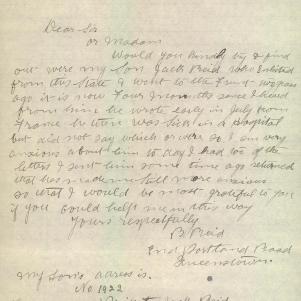 Dear Sir
or Madam
Would you kindly try & find
out were my Son Jack Reid who Enlisted
from this State & went to the Front 12 months
ago it is now Four months since I heard
from him he wrote early in July from
France he were was sick in a Hospital
but did not say which or were so I am very
anxious about him to day I had two of the
letters I sent him some time ago returned
that has made me still more anxious
so that I would be most grateful to you
if you could help me in this way
Yours respectfully
B Reid
End Portland Road
Queenstown
my Sons adress is.
No 1922
Jack Reid